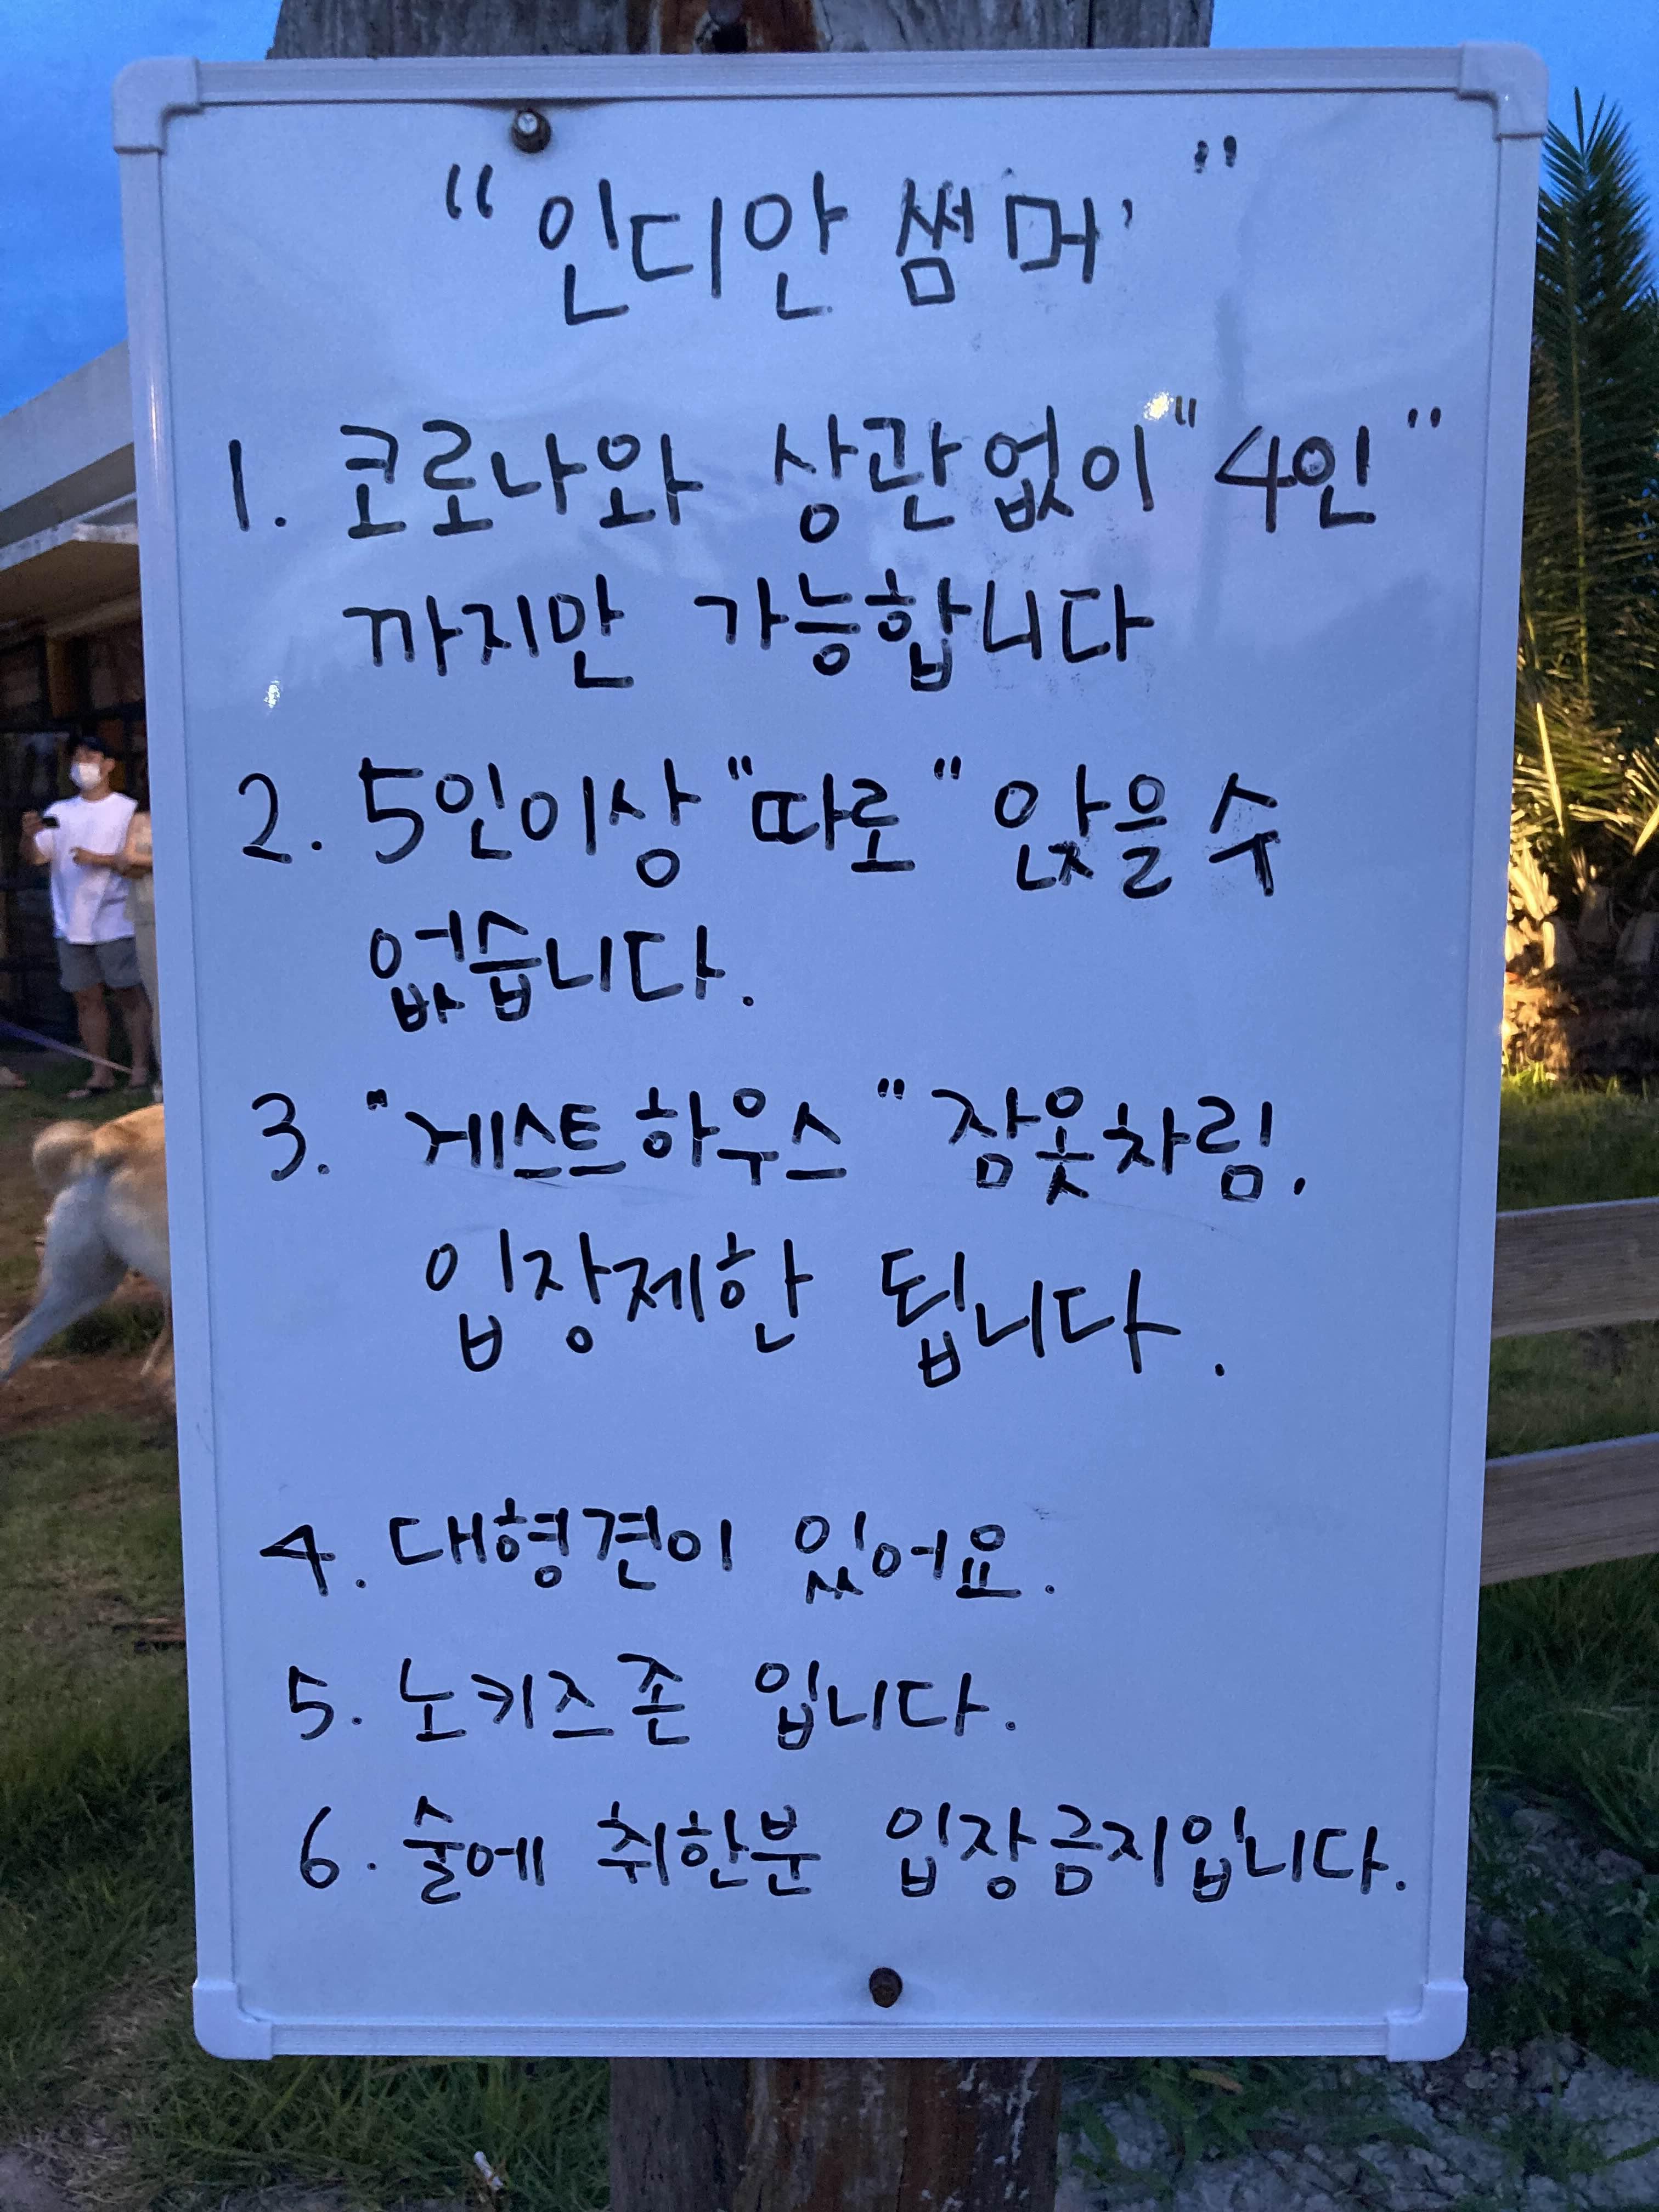 "인디안 썸머'"
1. 코로나와 상관없이 "4인"
까지만 가능합니다
2. 5인이상 "따로" 앉을 수
없습니다.
3. "게스트하우스" 잠옷차림.
입장제한 됩니다.
4. 대형견이 있어요.
5. 노키즈존 입니다.
6. 술에 취한분 입장금지입니다.